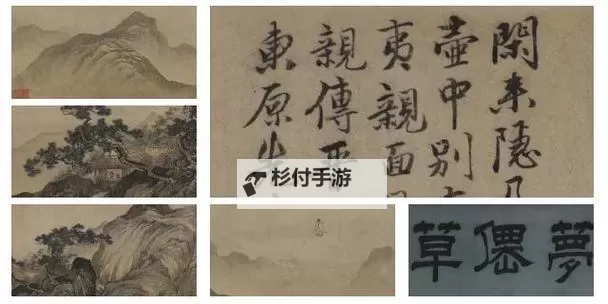 閑来隐几
壺中別
夷親面
親傳
東原先
杉付手游
夢僊草